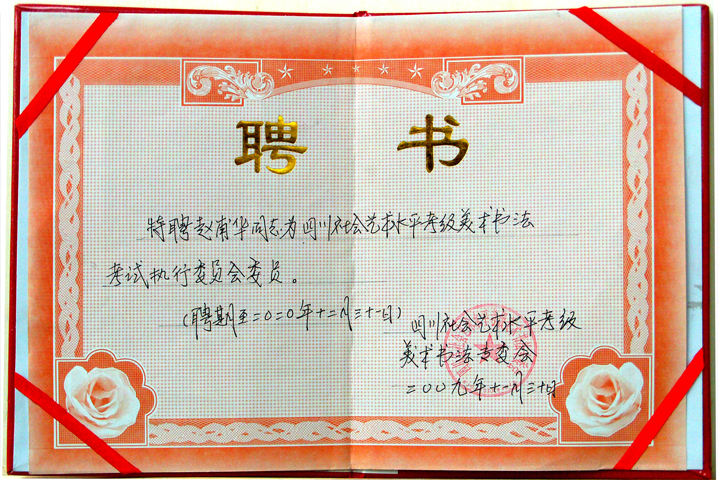 聘书
特聘赵甫华同志为四川社会艺术水平考级美术书法
考试执行委员会委员。
(聘期至二0二0年十二月三十一日)
四川社会艺术水平考级
美术书法专委会
二00九年十一月三十日